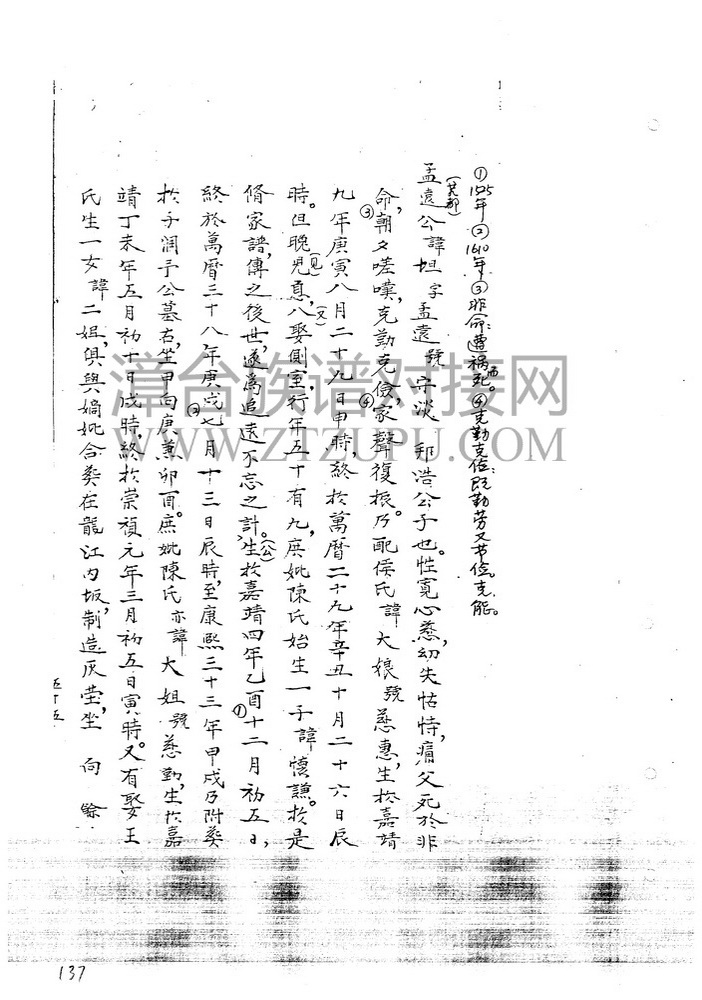 ①1525年②1610年③非命：遭祸而死。④克勤克俭：既勤劳又节俭。克，能。
孟遠公諱坦字孟遠號守淡 郭浩公子也。性寬心慈，幼失怙恃，痛父死於非
命，③朝夕嗟嘆，克勤克儉，④家聲復振。乃配侯氏諱大娘號慈惠，生於嘉靖
九年庚寅八月二十九日申時，終於萬曆二十九年辛丑十月二十六日辰
時。但晚兒(見)息，八(又)娶側室，行年五十有九，庶妣陳氏始生一子諱懷謙。於是
脩家譜，傳之後世，遂為追遠不忘之計。(公)生於嘉靖四年乙酉①十二月初五日，
終於萬曆三十八年庚戌②七月十三日辰時，至康熙三十三年甲戌乃附葬
於子潤予公墓右，坐甲向庚兼卯酉。庶妣陳氏亦諱大姐號慈勤，生於嘉
靖丁未年五月初十日戌時，終於崇禎元年三月初五日寅時。又有娶王
氏生一女諱二姐，俱與嫡妣合葬在龍江內坂，制造灰塋，坐 向 餘
五十五
137
漳台族谱对接网
WWW.ZTZUPU.COM